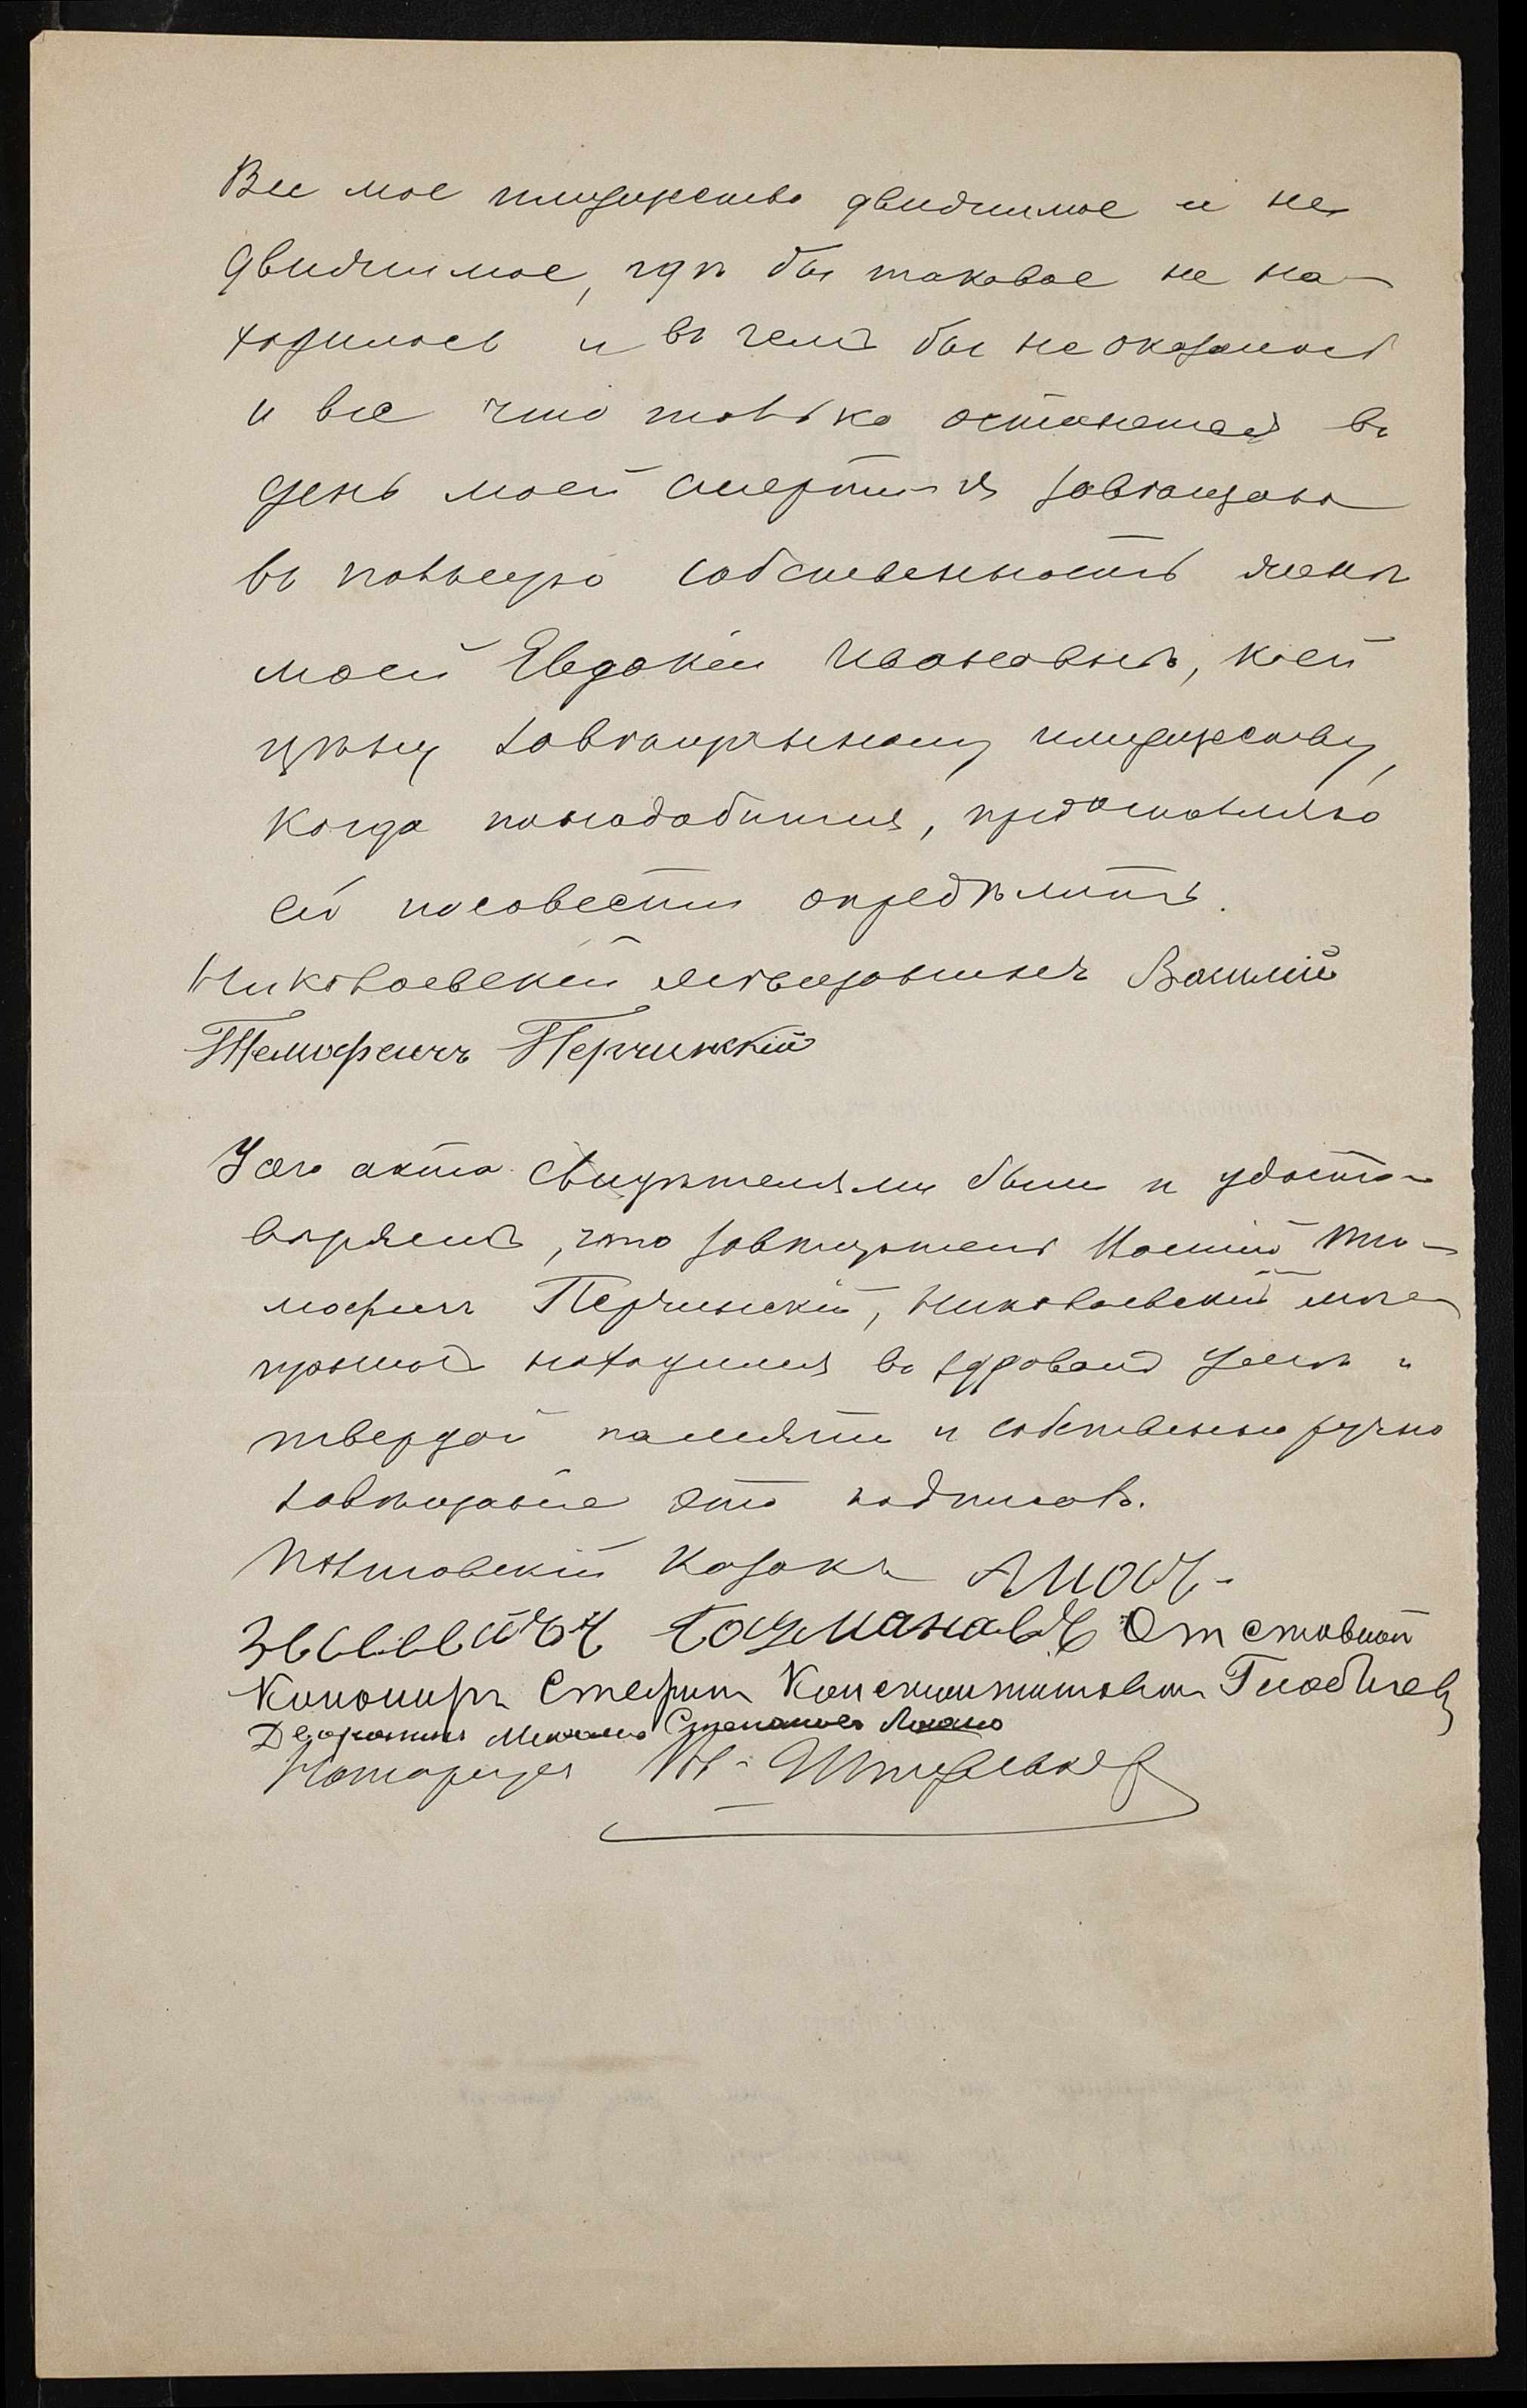 Все мое имущество движимое и не
движимое, гдѣ бы таковое не на-
ходилось и въ чемъ бы не оказалось
и все что только останется въ
день моей смерти я завѣщаю
въ полную собственность женѣ
моей Евдокіи Ивановнѣ, коей
цѣну завѣщанному имуществу,
когда понадобится, предоставляю
ей посовести опредѣлить.
Николаевскій мѣщанинъ Василій
Тимофеичъ Перчинскій
У сего акта свидѣтелями были и удосто-
вѣряемъ, что завѣщатель Василій Ти-
мофеичъ Перчинскій, Николаевскій мѣ-
щанинъ находился въ здравомъ умѣ и
твердой памяти и собственно ручно
завѣщаніе это подписалъ.
казакъ
Отставной
Степанъ Константиновъ
Дворянинъ Михаилъ Степановъ
Нотаріусъ